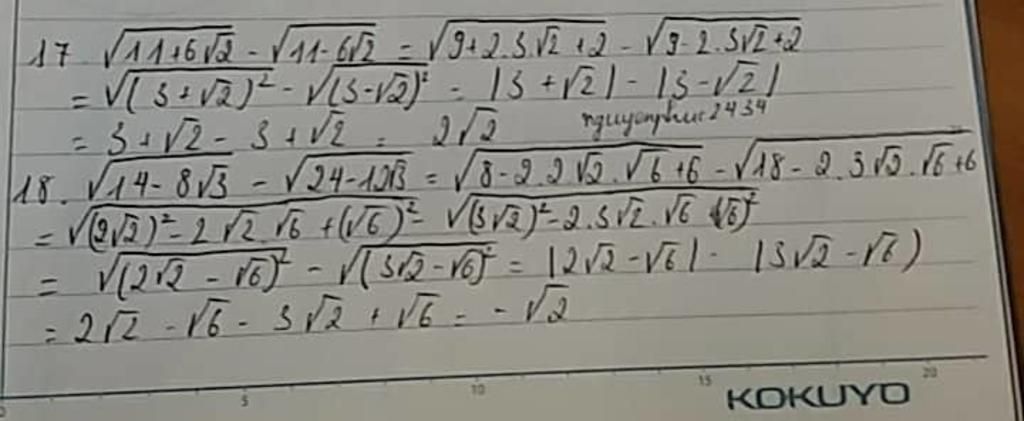 17. √(11+6√2) - √(11-6√2) = √(9+2.3√2+2) - √(9-2.3√2+2)
= √(3+√2)² - √(3-√2)² = |3+√2| - |3-√2|
= 3+√2 - 3+√2 = 2√2 nguyenphuc2434
18. √(14-8√3) - √(24-12√3) = √(8-2.2√2.√6+6) - √(18-2.3√2.√6+6)
= √((2√2)²-2√2.√6+(√6)²) - √((3√2)²-2.3√2.√6(√6)²)
= √(2√2-√6)² - √(3√2-√6)² = |2√2-√6| - |3√2-√6)
= 2√2 - √6 - 3√2 + √6 = -√2
0 5 10 15 20
KOKUYO